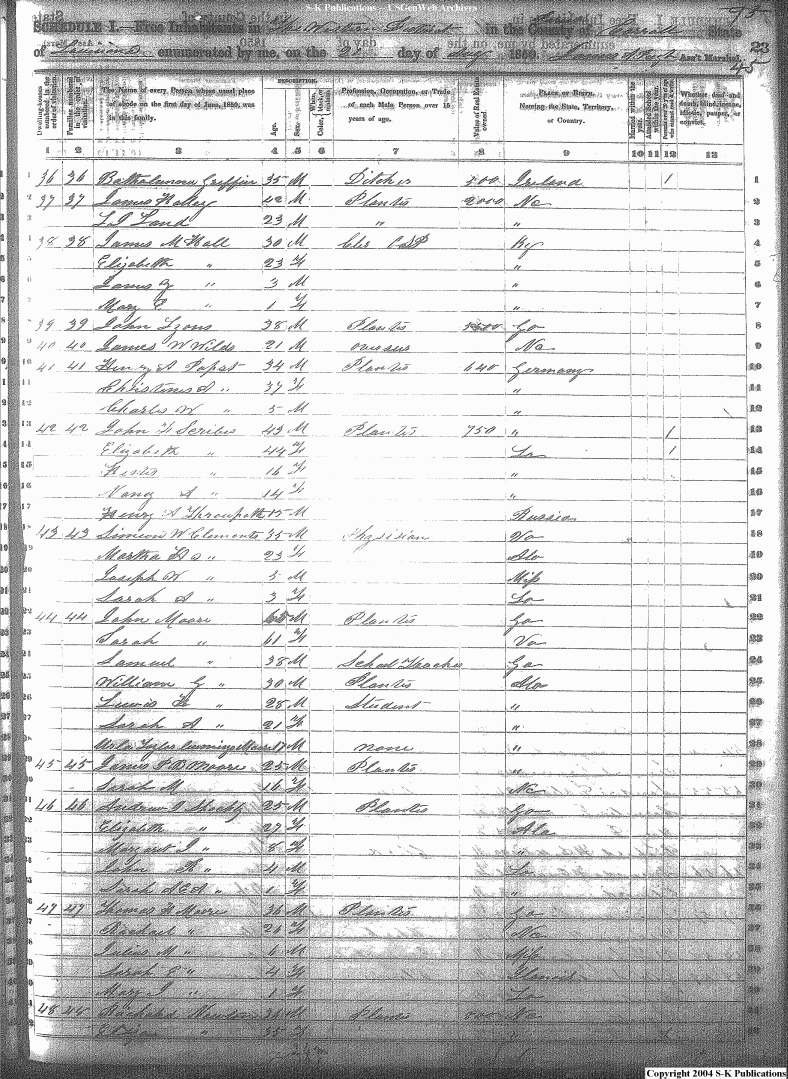 S-K Publications -- USGenWeb Archives
SCHEDULE I. Free Inhabitants in The Western District in the County of Carroll State
of Louisiana enumerated by me, on the 21 day of Aug 1850. Ass't Marshal. 23
95
45
Dwelling-houses numbered in the order of visitation.
Families numbered in the order of visitation.
The Name of every Person whose usual place of abode on the first day of June, 1850, was in this family.
DESCRIPTION.
Age.
Sex.
Color, White, black, or mulatto.
Profession, Occupation, or Trade of each Male Person over 15 years of age.
Value of Real Estate owned
PLACE OF BIRTH. Naming the State, Territory, or Country.
Married within the year.
Attended School within the year.
Persons over 20 y'rs of age who cannot read & write.
Whether deaf and dumb, blind, insane, idiotic, pauper, or convict.
1 2 3 4 5 6 7 8 9 10 11 12 13
1 36 36 Griffin 35 M Ditcher 500 Ireland 1 1
2 37 37 James Halley 42 M Planter 2000 Nc 2
3 L J Land 23 M " " 3
4 38 38 James M Hall 30 M Ky 4
5 Elizabeth " 23 F " 5
6 James " 3 M " 6
7 Mary E " 1 F " 7
8 39 39 John Lyons 38 M Planter Ga 8
9 40 40 James W Wilds 21 M overseer Nc 9
10 41 41 Henry A Papst 34 M Planter 640 Germany 10
11 Christina A " 37 F " 11
12 Charles W " 5 M " 12
13 42 42 John F Scriber 43 M Planter 750 " 1 13
14 Elizabeth " 44 F La 1 14
15 " 16 F " 15
16 Nancy A " 14 F " 16
17 Henry A 15 M Russia 17
18 43 43 Simeon W Clements 35 M Physician Va 18
19 Martha " 23 F Ala 19
20 Joseph W " 5 M Miss 20
21 Sarah A " 3 F La 21
22 44 44 John Moore M Planter Ga 22
23 Sarah " 61 F Va 23
24 Samuel " 38 M School Teacher Ga 24
25 William G " 30 M Planter Ala 25
26 Lewis " 28 M Student " 26
27 Sarah A " 21 F " 27
28 Moore 17 M none " 28
29 45 45 James F B Moore 25 M Planter " 29
30 Sarah M 16 F Nc 30
31 46 46 Andrew 25 M Planter Ga 31
32 Elizabeth " 27 F Ala 32
33 Margaret J " 8 F " 33
34 John " 4 M La 34
35 Sarah " 1 F " 35
36 47 47 Thomas H Moore 36 M Planter Ga 36
37 Rachael " 26 F Nc 37
38 Julius M " 6 M Miss 38
39 Sarah E " 4 F Illinois 39
40 Mary J " 1 F La 40
41 48 48 Newton 36 M Planter Nc 41
42 " 35 F " 42
Copyright 2004 S-K Publications